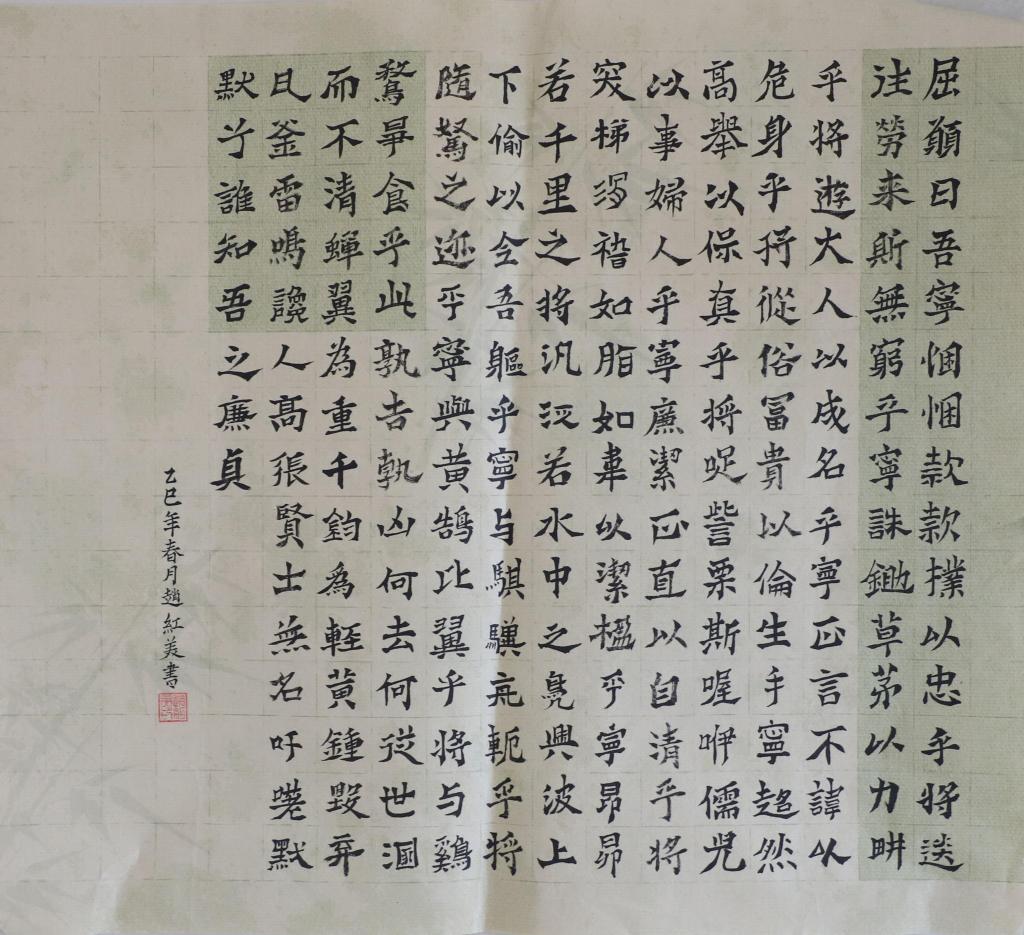 屈願曰吾寧悃悃款款撲以忠乎将送
往勞来斯無窮乎寧誅鋤草茅以力耕
乎将遊大人以成名乎寧正言不諱以
危身乎将從俗冨貴以倫生乎寧超然
高舉以保真乎将哫訾栗斯喔咿儒児
以事婦人乎寧廉潔正直以自清乎将
突梯滑稽如脂如韋以潔楹乎寧昂昂
若千里之将汎汎若水中之鳧興波上
下偷以全吾軀乎寧与騏驥亢軛乎将
随駑之迹乎寧與黄鵠比翼乎将与鷄
鶩爭食乎此孰吉孰凶何去何從世溷
而不清蟬翼為重千鈞為輕黄鍾毀弃
瓦釜雷鳴讒人髙張賢士無名吁嗟默
默兮誰知吾之廉貞
乙巳年春月趙紅美書